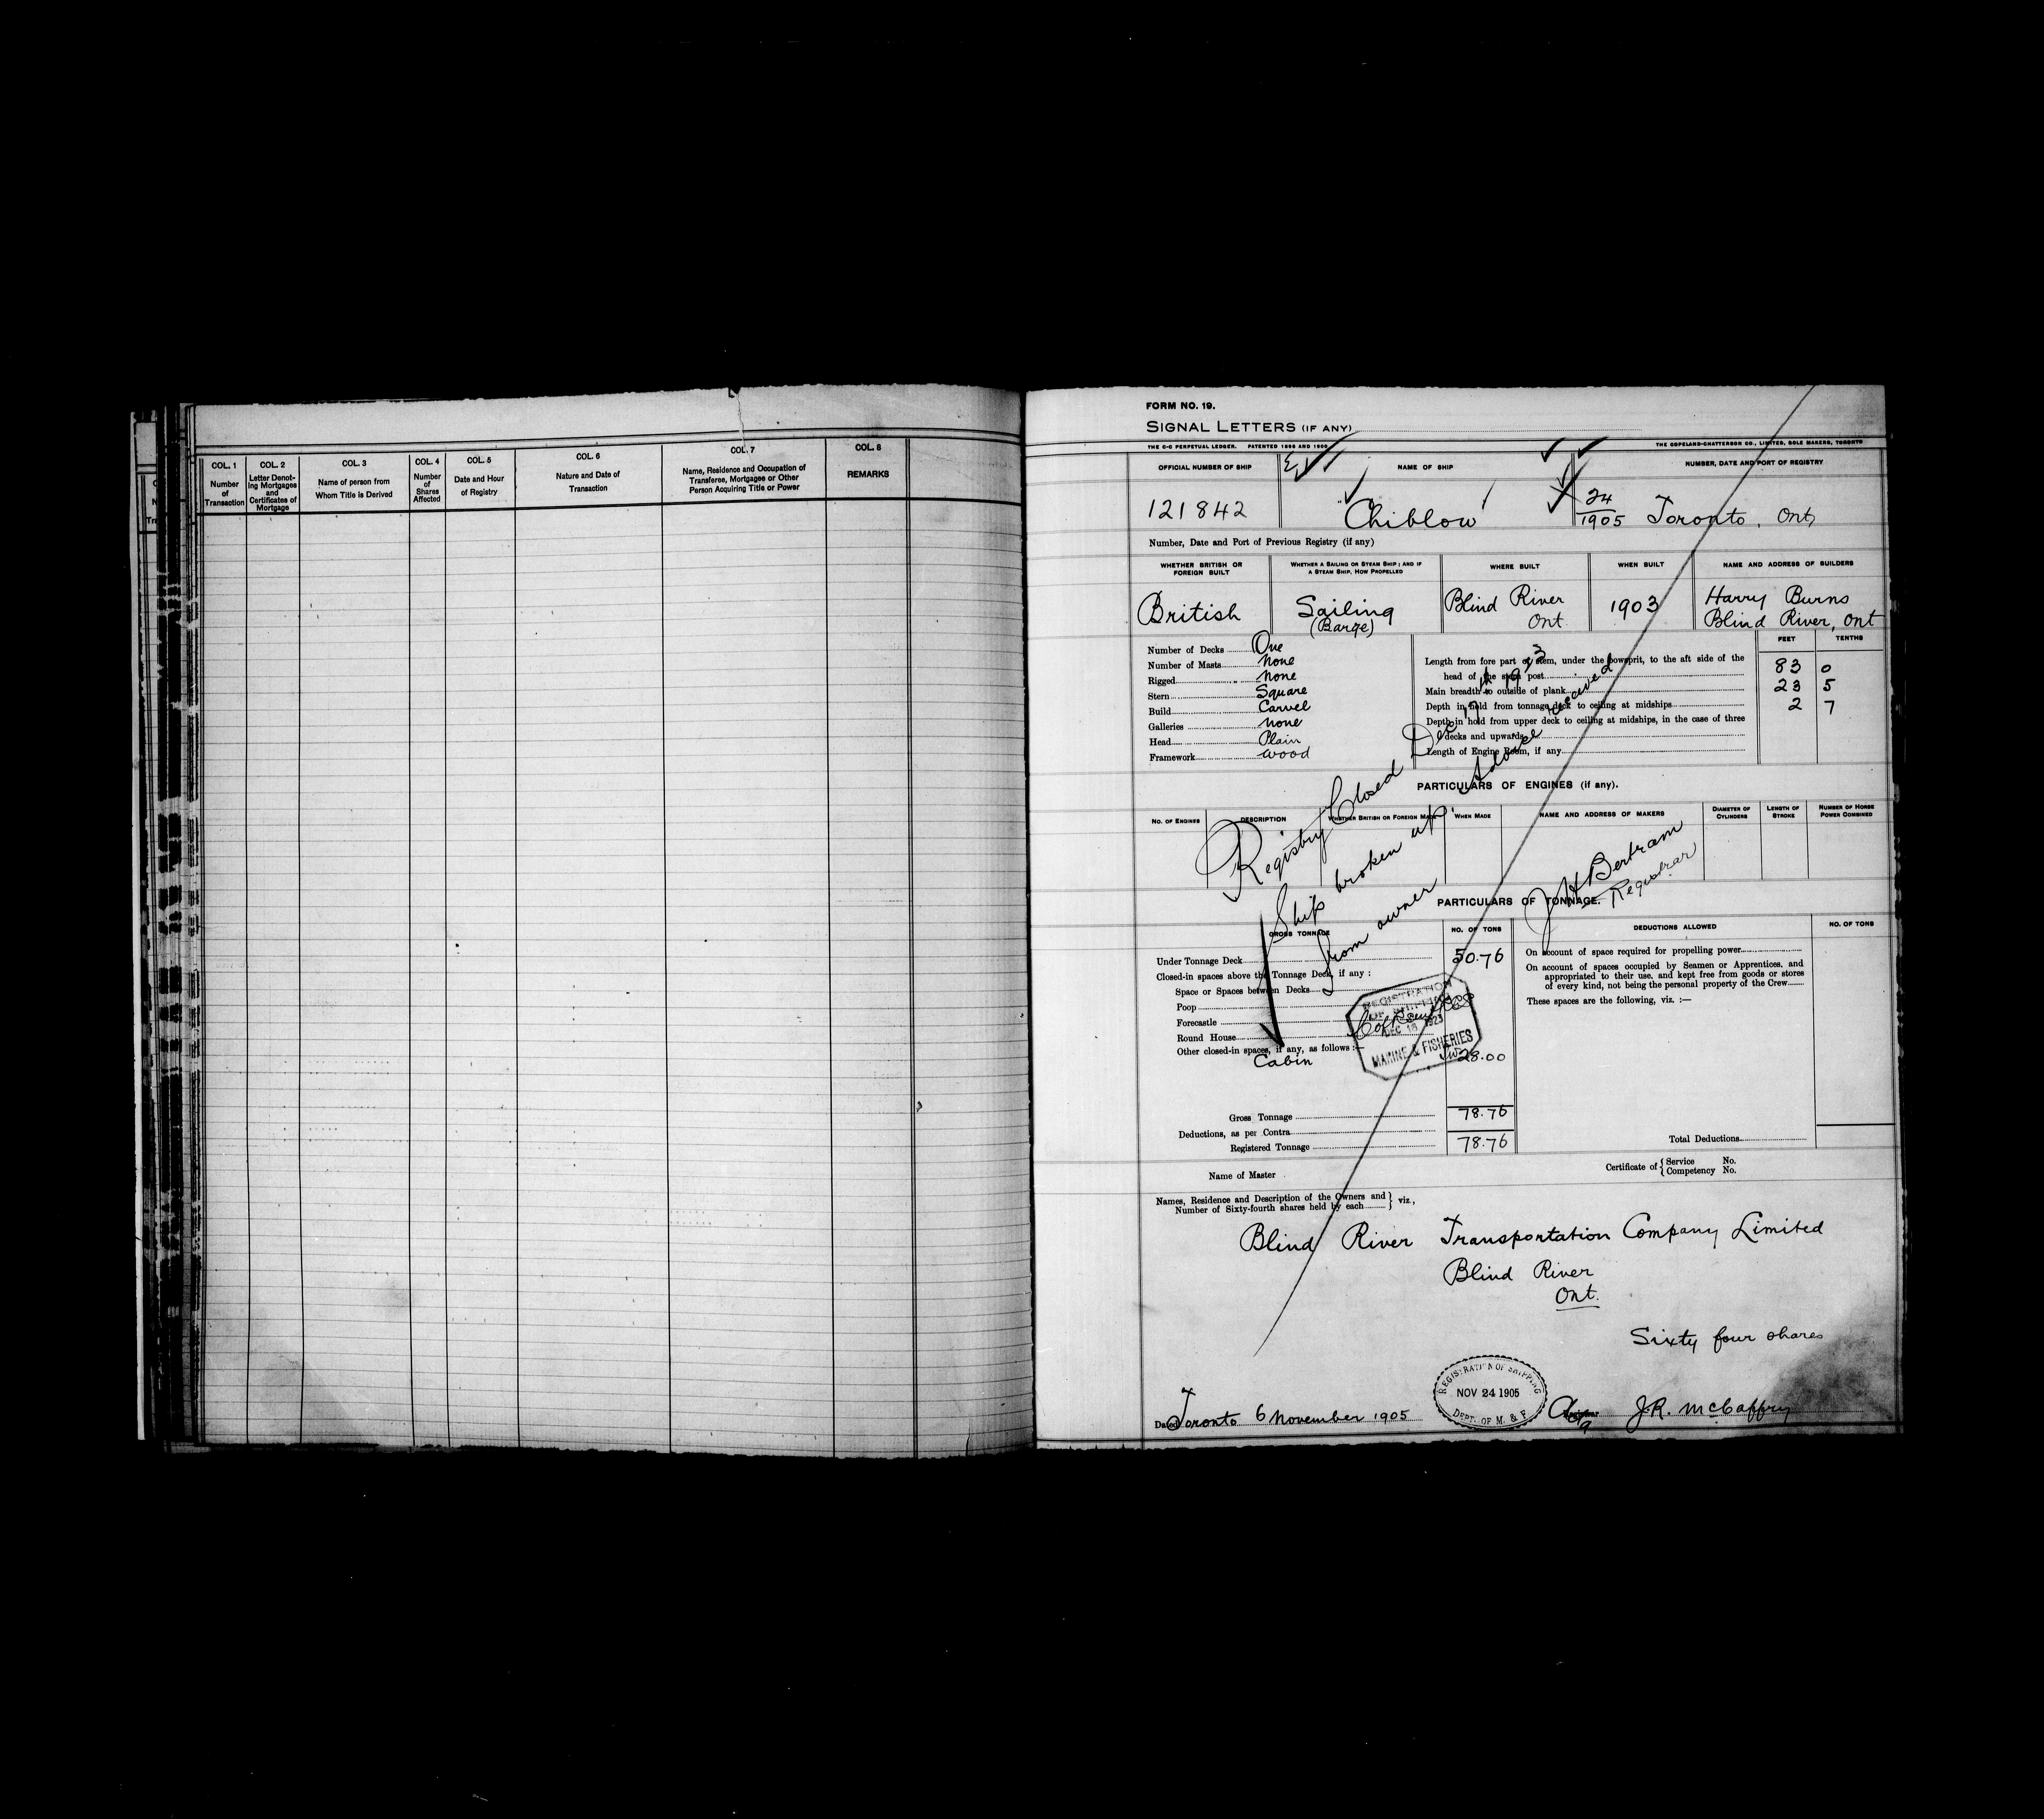 COL. 1
Number
of
Transaction
COL. 2
Letter Denot-
ing Mortgages
and
Certificates of
Mortgage
COL. 3
Name of person from
Whom Title is Derived
COL. 4
Number
of
Shares
Affected
COL. 5
Date and Hour
of Registry
COL. 6
Nature and Date of
Transaction
COL. 7
Name, Residence and Occupation of
Transferee, Mortgagee or Other
Person Acquiring Title or Power
COL. 8
REMARKS
FORM NO. 19.
SIGNAL LETTERS (IF ANY)
THE C-C PERPETUAL LEDGER. PATENTED 1896 AND 1900
THE COPELAND-CHATTERSON CO., LIMITED, SOLE MAKERS, TORONTO
OFFICIAL NUMBER OF SHIP
NAME OF SHIP
NUMBER, DATE AND PORT OF REGISTRY
121842
"Chiblow"
24
1905 Toronto, Ont,
Number, Date and Port of Previous Registry (if any)
WHETHER BRITISH OR
FOREIGN BUILT
WHETHER A SAILING OR STEAM SHIP; AND IF
A STEAM SHIP, HOW PROPELLED
WHERE BUILT
WHEN BUILT
NAME AND ADDRESS OF BUILDERS
British
Sailing
(Barge)
Blind River
Ont
1903
Harry Burns
Blind River, Ont
Number of Decks One
Number of Masts none
Rigged none
Stern Square
Build Carvel
Galleries none
Head Plain
Framework wood
FEET TENTHS
Length from fore part of stem, under the bowsprit, to the aft side of the
head of the stern post 83 0
Main breadth to outside of plank 23 5
Depth in hold from tonnage deck to ceiling at midships 2 7
Depth in hold from upper deck to ceiling at midships, in the case of three
decks and upwards
Length of Engine Room, if any
Registry Closed Dec 17th 1923
Ship broken up. Advice received
from owner
J H Bertram
Registrar
PARTICULARS OF ENGINES (if any).
NO. OF ENGINES
DESCRIPTION
WHETHER BRITISH OR FOREIGN MADE
WHEN MADE
NAME AND ADDRESS OF MAKERS
DIAMETER OF
CYLINDERS
LENGTH OF
STROKE
NUMBER OF HORSE
POWER COMBINED
PARTICULARS OF TONNAGE.
GROSS TONNAGE
NO. OF TONS
DEDUCTIONS ALLOWED
NO. OF TONS
Under Tonnage Deck 50.76
Closed-in spaces above the Tonnage Deck, if any :
Space or Spaces between Decks
Poop
Forecastle
Round House
Other closed-in spaces, if any, as follows :—
Cabin 28.00
REGISTRATION
OF SHIPPING
DEC 18 1923
MARINE & FISHERIES
Gross Tonnage 78.76
Deductions, as per Contra
Registered Tonnage 78.76
On account of space required for propelling power
On account of spaces occupied by Seamen or Apprentices, and
appropriated to their use, and kept free from goods or stores
of every kind, not being the personal property of the Crew
These spaces are the following, viz. :—
Total Deductions
Name of Master
Certificate of { Service No.
Competency No.
Names, Residence and Description of the Owners and } viz.,
Number of Sixty-fourth shares held by each
Blind River Transportation Company Limited
Blind River
Ont.
Sixty four shares
REGISTRATION OF SHIPPING
NOV 24 1905
DEPT. OF M. & F.
Dated Toronto 6 November 1905
J.R. McCaffry